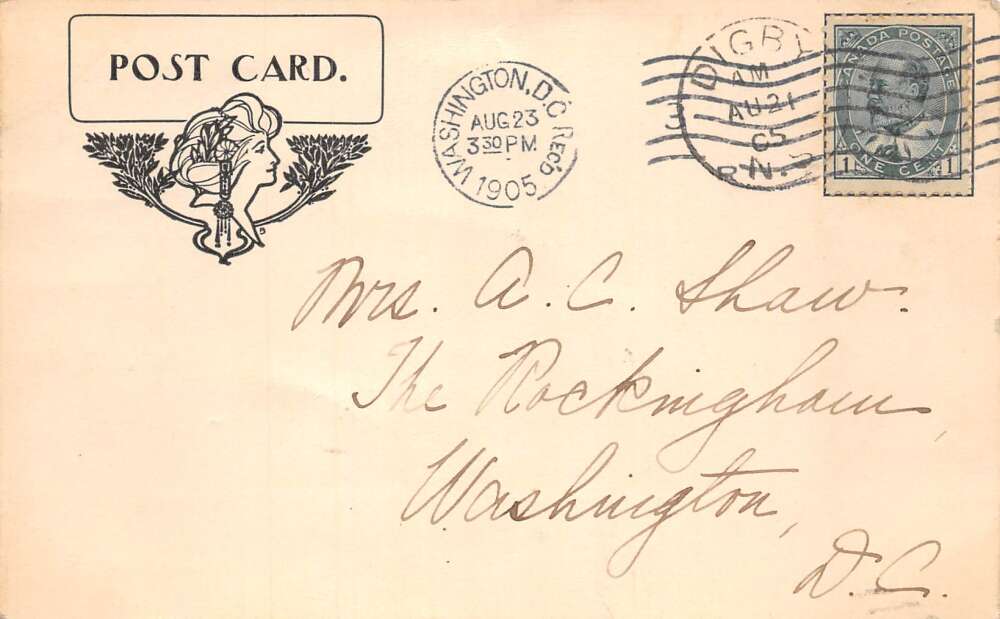 POST CARD.
WASHINGTON, D.C. REC'D
AUG 23
3 30 PM
1905
3
DIGBY
AM
AU 21
05
N.S
CANADA POSTAGE
1 ONE CENT 1
Mrs. A. C. Shaw.
The Rockingham,
Washington,
D.C.